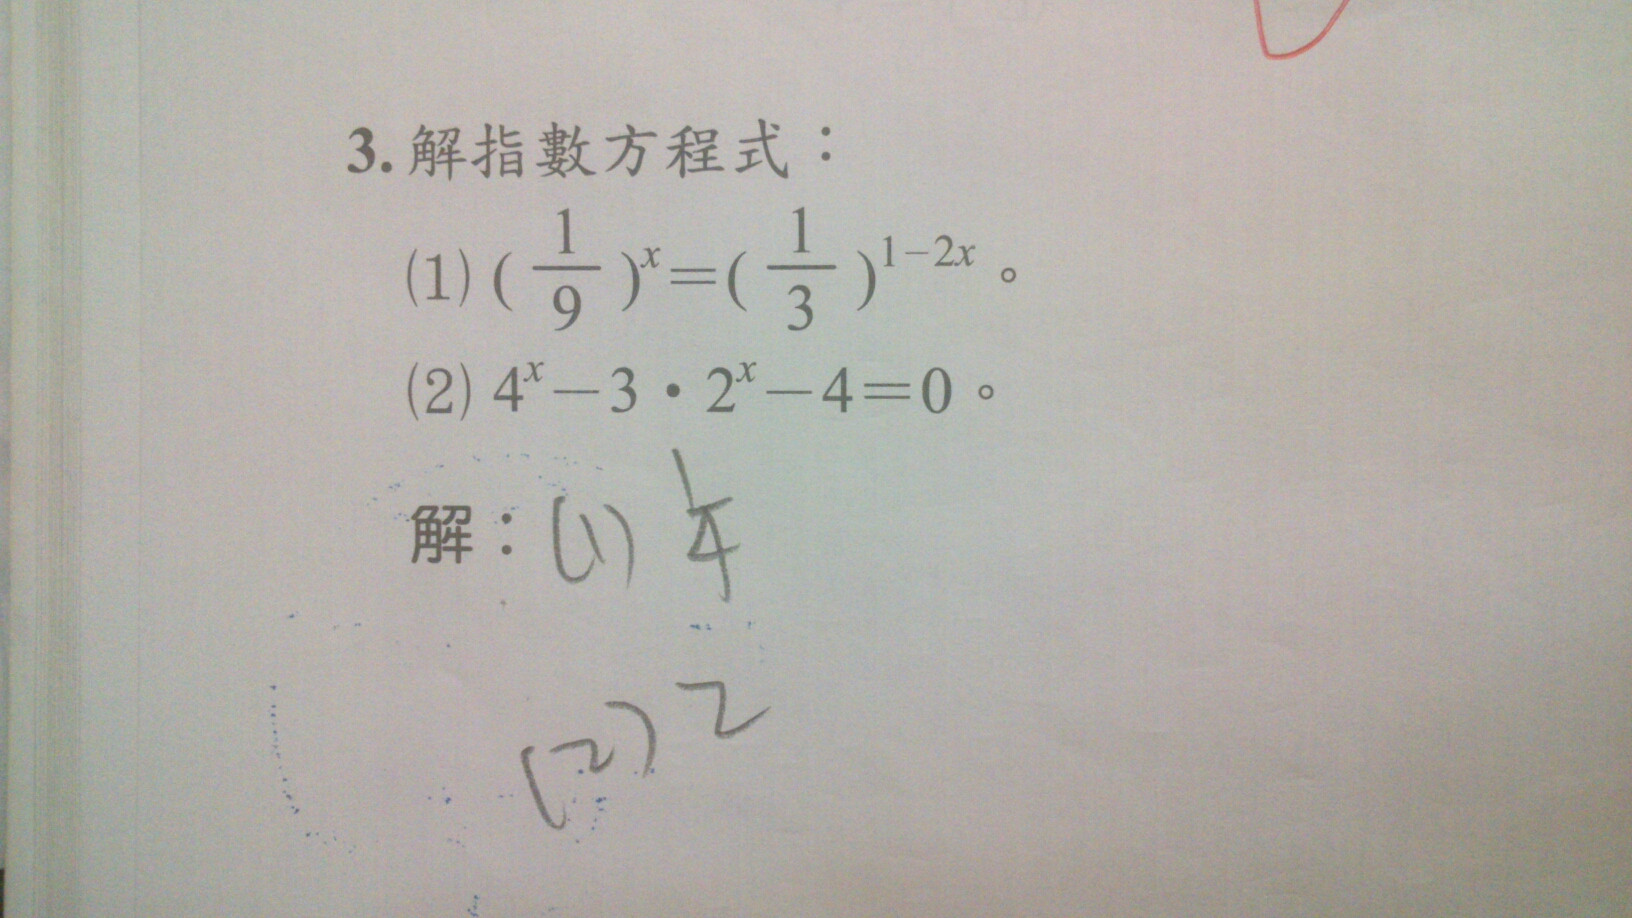 3. 解指數方程式：
(1) (1/9)^x=(1/3)^{1-2x}。
(2) 4^x-3·2^x-4=0。
解：(1) 1/4
(2) 2